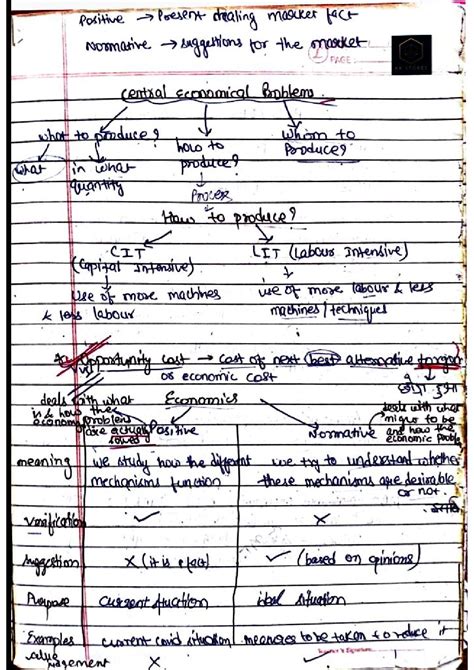 Positive → Present dealing market fact
Normative → suggestions for the market
PAGE:
Central Economical Problems
what to produce?
how to produce?
Whom to Produce?
what
in what quantity
Process
How to produce?
CIT (Capital Intensive)
LIT (Labour Intensive)
Use of more machines & less labour
use of more labour & less machines/techniques
Opportunity cost → cost of next (best) alternative forgone
or economic cost
Economics
deals with what is & how the economy problems are actually solved
Positive
Normative
deals with what to be and how the economic problem
meaning
we study how the different mechanisms function
we try to understand whether these mechanisms are desirable or not.
Verification
✓
×
Suggestion
× (it is a fact)
✓ (based on opinions)
Purpose
current situation
ideal situation
Examples
current covid situation
measures to be taken to reduce it
value judgement
×
✓